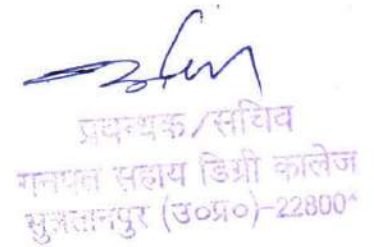 प्रबन्धक/सचिव
गनपत सहाय डिग्री कालेज
सुलतानपुर (उ०प्र०)-22800